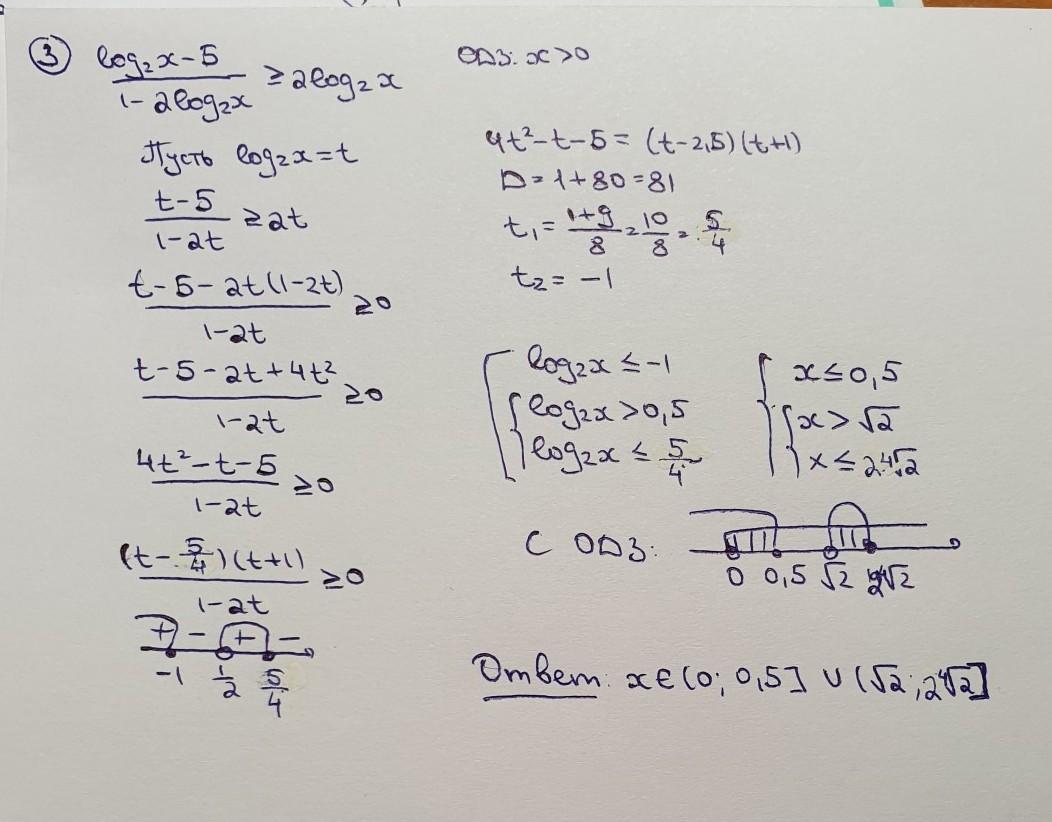 ③ (log₂x-5)/(1-2log₂x) ≥ 2log₂x
Пусть log₂x=t
(t-5)/(1-2t) ≥ 2t
(t-5-2t(1-2t))/(1-2t) ≥0
(t-5-2t+4t²)/(1-2t) ≥0
(4t²-t-5)/(1-2t) ≥0
((t-5/4)(t+1))/(1-2t) ≥0
+ - + -
-1 1/2 5/4
ОДЗ: x>0
4t²-t-5= (t-2,5)(t+1)
D=1+80=81
t₁= (1+9)/8 = 10/8 = 5/4
t₂= -1
[ log₂x ≤-1 { x≤0,5
{ log₂x>0,5 { x>√2
log₂x ≤ 5/4 x≤2⁴√2
С ОДЗ:
0 0,5 √2 2⁴√2
Ответ: x∈(0; 0,5] ∪ (√2; 2⁴√2]